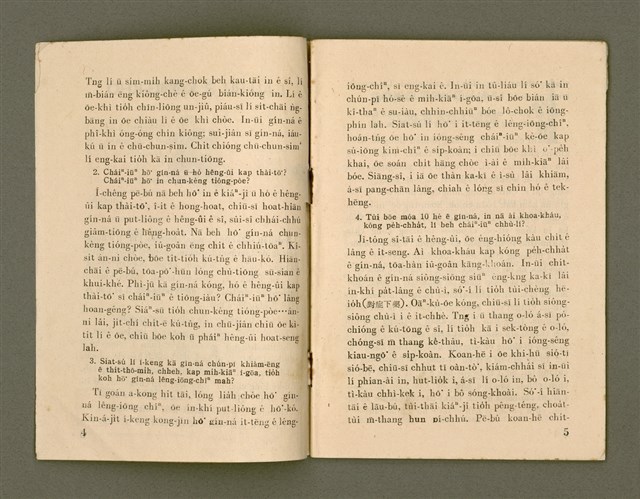 Tng lí ū sím-mih kang-chok beh kau-tāi in ê sî, lí
m̄-bián ēng kiông-chè ê ōe-gú biān-kióng in. Lí ê
ōe-khì tio̍h chin-lióng un-jiû, piáu-sī lí si̍t-chāi ǹg-
bāng in ōe chiàu lí ê ōe khì chòe. In-ūi gín-ná ê
phî-khì óng-óng chin kiông; sui-jiân sī gín-ná, iáu-
kú ū in ê chū-chun-sim. Chit chióng chū-chun-sim'
lí eng-kai tio̍h kā in chun-tiōng.
2. Cháiⁿ-iūⁿ hō͘ gín-ná ū hó hêng-ûi kap thāi-tō͘?
Cháiⁿ-iūⁿ hō͘ in chun-kèng tióng-pòe?
Í-chêng pē-bó nā beh hō͘ in ê kiáⁿ-jî ū hó ê hêng-
ûi kap thāi-tō͘, í-it ê hong-hoat, chiū-sī hoat-hiān
gín-ná ū put-liông ê hêng-ûi ê sî, sûi-sî chhái-chhú
giâm-tiōng ê hêng-hoat. Nā beh hō͘ gín-ná chun-
kèng tióng-pòe, iû-goân ēng chit ê chhiú-tōaⁿ. Kî-
si̍t án-ni chòe, bōe tit-tio̍h kú-tn̂g ê hāu-kó. Hiān-
chāi ê pē-bú, tōa-pō͘-hūn lóng chú-tiong sū-sian ê
khui-khé. Phì-jū kā gín-ná kóng, hó ê hêng-ûi kap
thāi-tō͘ sī cháiⁿ-iūⁿ ê tiōng-iàu? Cháiⁿ-iūⁿ hō͘ lâng
hoan-gêng? Siáⁿ-sū tio̍h chun-kèng tióng-pòe···án-
ni lâi, ji̍t-chì chi̍t-ê kú-tn̂g, in chū-jiân chiū ōe kì-
tit lí ê ōe, chiū bōe koh ū pháiⁿ hêng-ûi hoat-seng
lah.
3. Siat-sú lí í-keng kā gín-ná chún-pī khiàm-ēng
ê thit-thô-mi̍h, chheh, kap mi̍h-kiāⁿ í-gōa, tio̍h
koh hō͘ gín-ná lêng-iōng-chîⁿ mah?
Tī goán a-kong hit tāi, lóng liáh chòe hō͘ gín-
ná lêng-iōng chîⁿ, ōe in-khí put-liông ê hō͘-kó.
Kin-á-ji̍t í-keng kong-jīn hō͘ gín-ná it-tēng ê lêng-
4
iōng-chîⁿ, sī eng-kai ê. In-ūi in tû-liáu lí só͘ kā in
chún-pī hó-sè ê mi̍h-kiāⁿ í-gōa, ū-sî bōe biàn iā ū
kî-thaⁿ ê su-iàu, chhin-chhiūⁿ bóe lo̍k-chok ê iōng-
phín lah. Siat-sú lí hō͘ i it-tēng ê lêng-iōng-chîⁿ,
hoān-tńg ōe hō͘ in iōng-sêng cháiⁿ-iūⁿ kè-ōe kap
sú-iōng kim-chîⁿ ê si̍p-koàn; i chiū bōe khì o͘-pe̍h
khai, ōe soán chi̍t hāng chòe i-ài ê mi̍h-kiāⁿ lâi
bóe. Siāng-sî, i iā ōe thàn ka-kī ê i-sù lâi khiām,
á-sī pang-chān lâng, chiah ê lóng sī chin hó ê tek-
hêng.
4. Tùi bōe móa 10 hè ê gín-ná, in nā ài khoa-kháu,
kóng pe̍h-chhát, lí beh cháiⁿ-iūⁿ chhù-lí?
Jî-tông sî-tāi ê hêng-ûi, ōe éng-hióng kàu chi̍t ê
lâng ê it-seng. Ài khoa-kháu kap kóng pe̍h-chhát
ê gín-ná, tōa-hàn iû-goân káng-khoán. In-ūi chit-
khoán ê gín-ná siông-siông siūⁿ eng-kng ka-kī lâi
ín-khí pa̍t-lâng ê chú-ì, só͘-í lí tio̍h tùi-chèng hē-
io̍h(對症下藥). Oāⁿ-kù-ōe kóng, chiū-sī lí tio̍h siông-
siông chú-ì i ê it-chhè. Tng i ū thang o-ló á-sī pó-
chióng ê kù-tōng ê sî, lí tio̍h kā i sek-tòng ê o-ló,
chóng-sī m̄ thang kè-thâu, tì-kàu hō͘ i iōng-sêng
kiau-ngō͘ ê si̍p-koàn. Koan-hē i ōe khì-hū sió-tī
sió-bē, chiū-sī chhut tī oàn-tò͘, kiám-chhái sī in-ūi
lí phian-ài in, hut-lio̍k i, á-sī lí o-ló in, bô o-ló i,
tì-kàu chhi-kek i, hō͘ i bô sóng-khoài. Só͘-í hiān-
tāi ê lāu-bú, tùi-thāi kiáⁿ-jî tio̍h pêng-têng, choa̍t-
tùi m̄-thang hun pí-chhú. Pē-bú koan-hē chit-
5